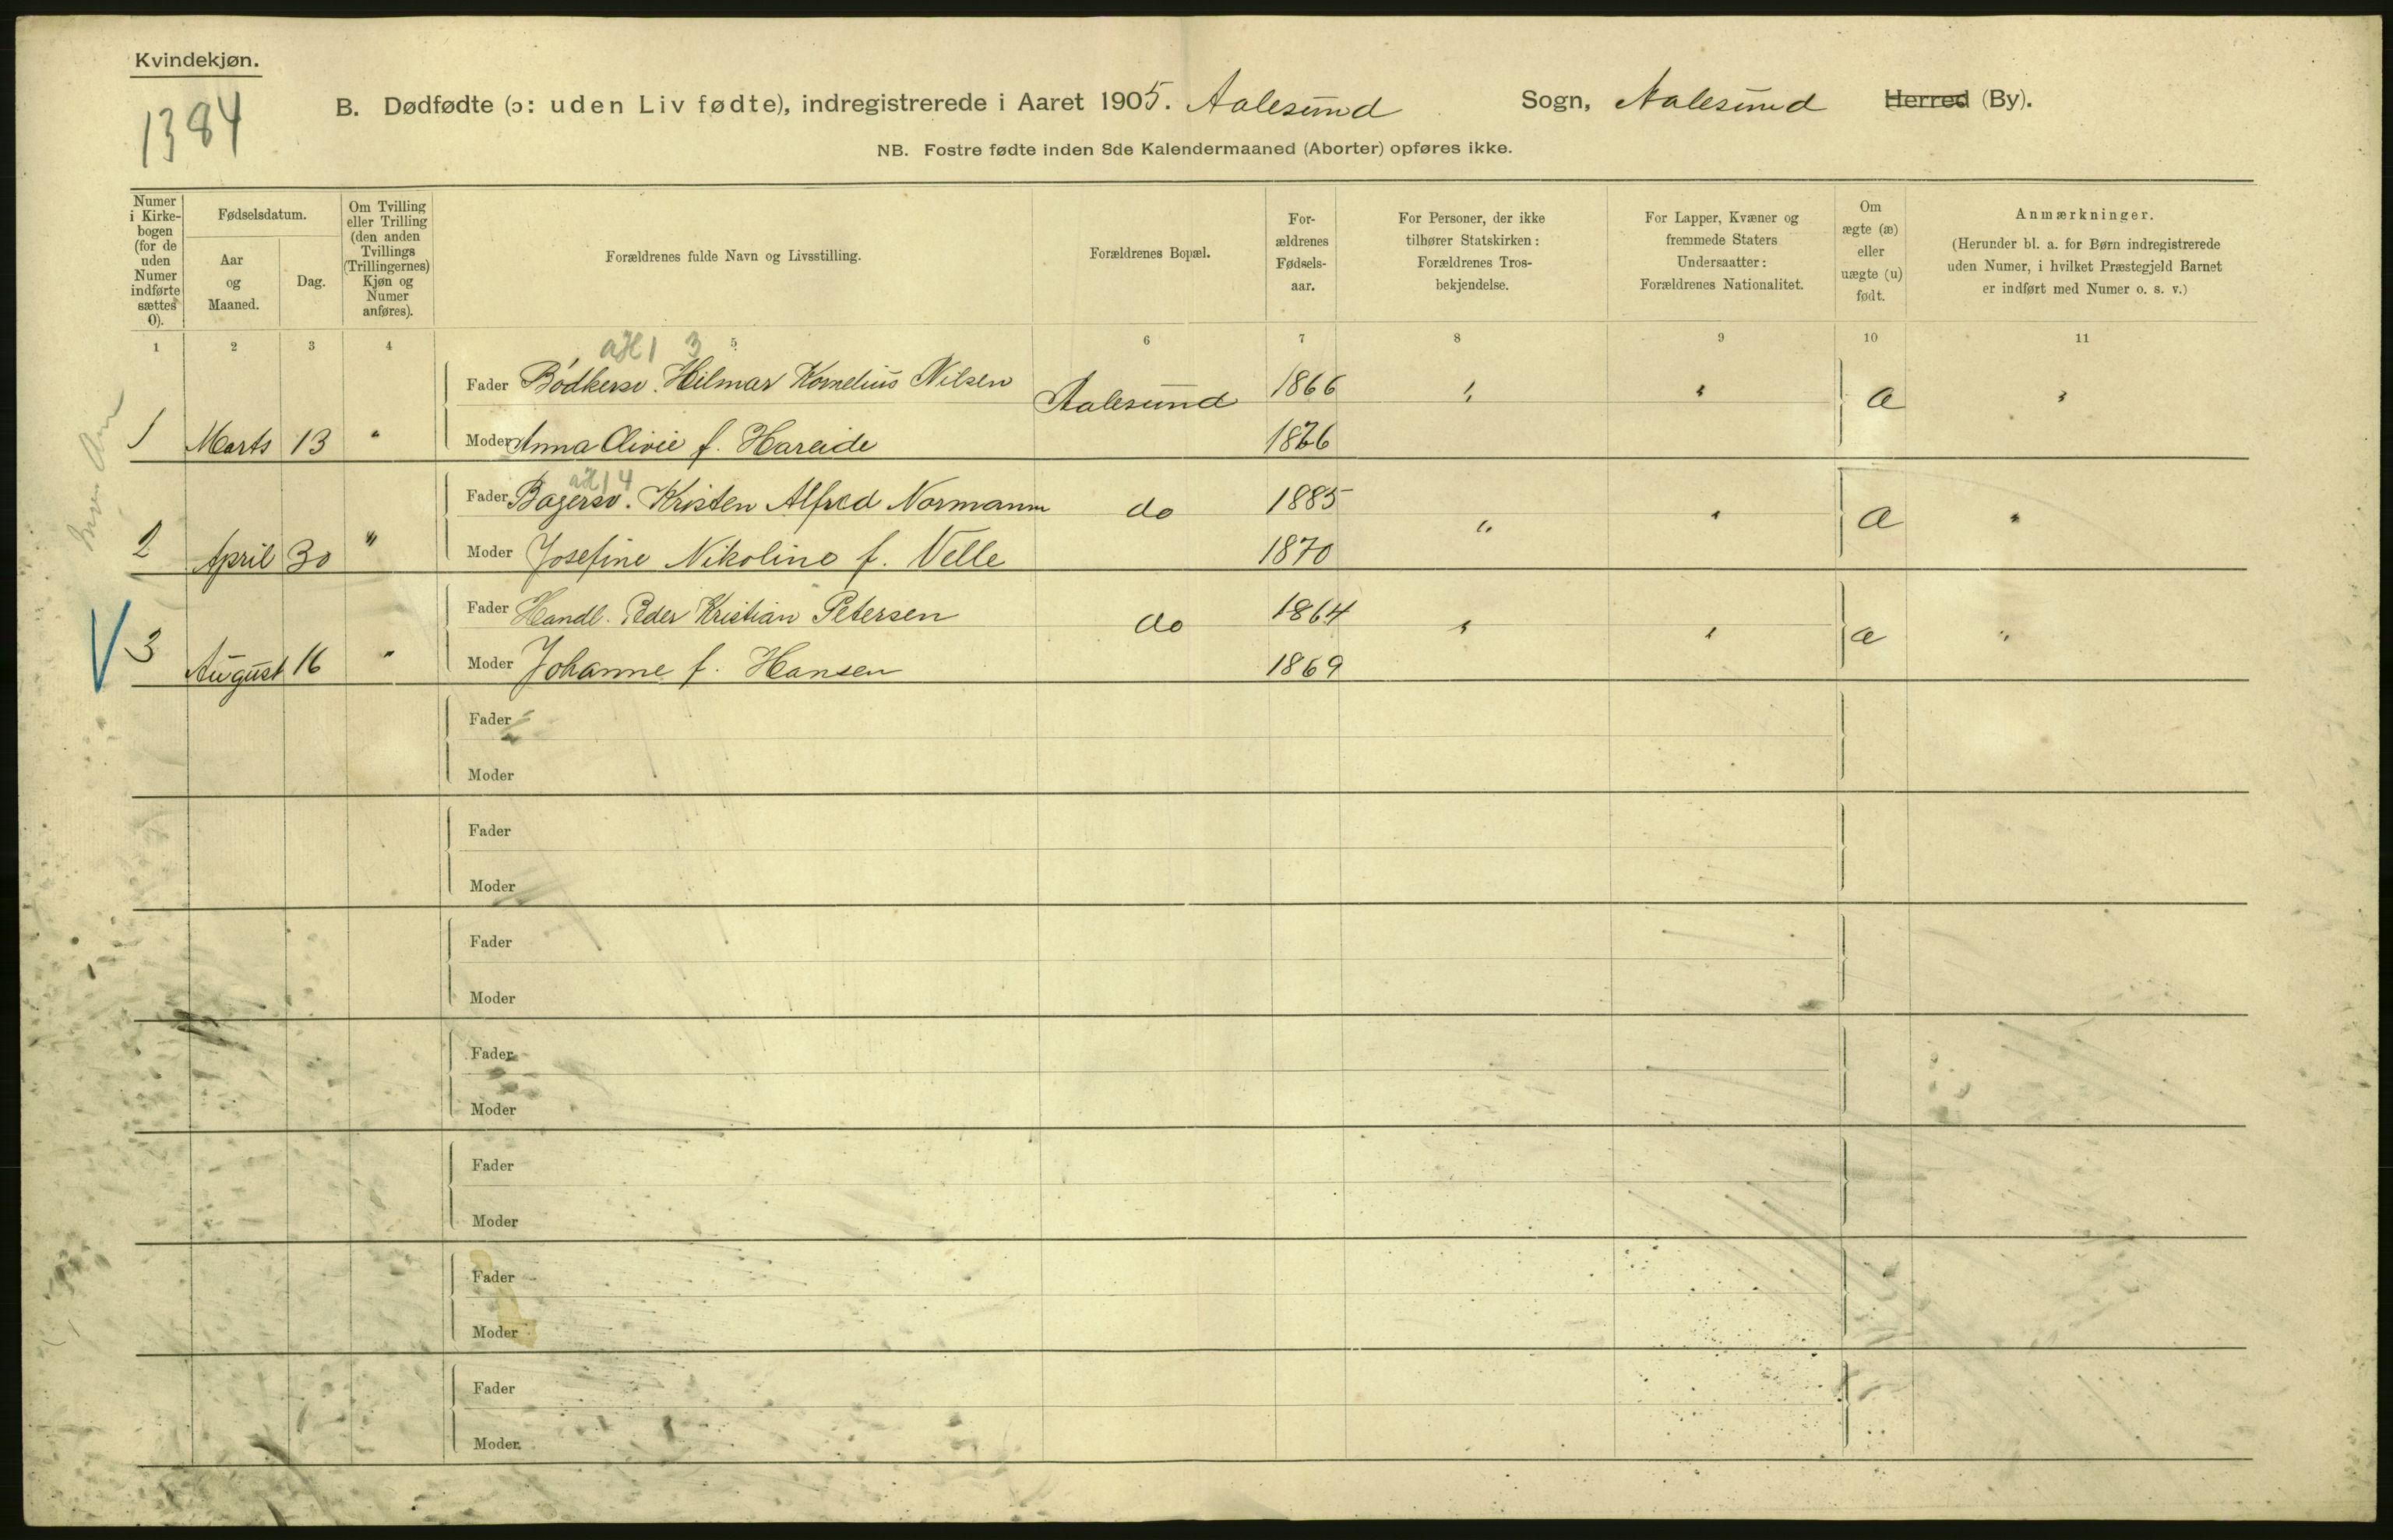 Kvindekjøn.
1384
B. Dødfødte (ɔ: uden Liv fødte), indregistrerede i Aaret 1905. Aalesund Sogn, Aalesund Herred (By).
NB. Fostre fødte inden 8de Kalendermaaned (Aborter) opføres ikke.
Numer i Kirke-bogen (for de uden Numer indførte sættes 0).
Fødselsdatum.
Aar og Maaned.
Dag.
Om Tvilling eller Trilling (den anden Tvillings (Trillingernes) Kjøn og Numer anføres).
Forældrenes fulde Navn og Livsstilling.
Forældrenes Bopæl.
For-ældrenes Fødsels-aar.
For Personer, der ikke tilhører Statskirken: Forældrenes Tros-bekjendelse.
For Lapper, Kvæner og fremmede Staters Undersaatter: Forældrenes Nationalitet.
Om ægte (æ) eller uægte (u) født.
Anmærkninger.
(Herunder bl. a. for Børn indregistrerede uden Numer, i hvilket Præstegjeld Barnet er indført med Numer o. s. v.)
1 2 3 4 5 6 7 8 9 10 11
3
Fader Bødkersv. Hilmar Kornelius Nilsen Aalesund 1866 " " æ "
1 Marts 13 " Moder Anna Olivie f. Hareide 1876
14
Fader Bagersv. Kristen Alfred Normann do 1885 " " æ "
2 April 30 " Moder Josefine Nikoline f. Velle 1870
Fader Handl. Peder Kristian Petersen do 1864 " " æ "
3 August 16 " Moder Johanne f. Hansen 1869
Fader
Moder
Fader
Moder
Fader
Moder
Fader
Moder
Fader
Moder
Fader
Moder
Fader
Moder